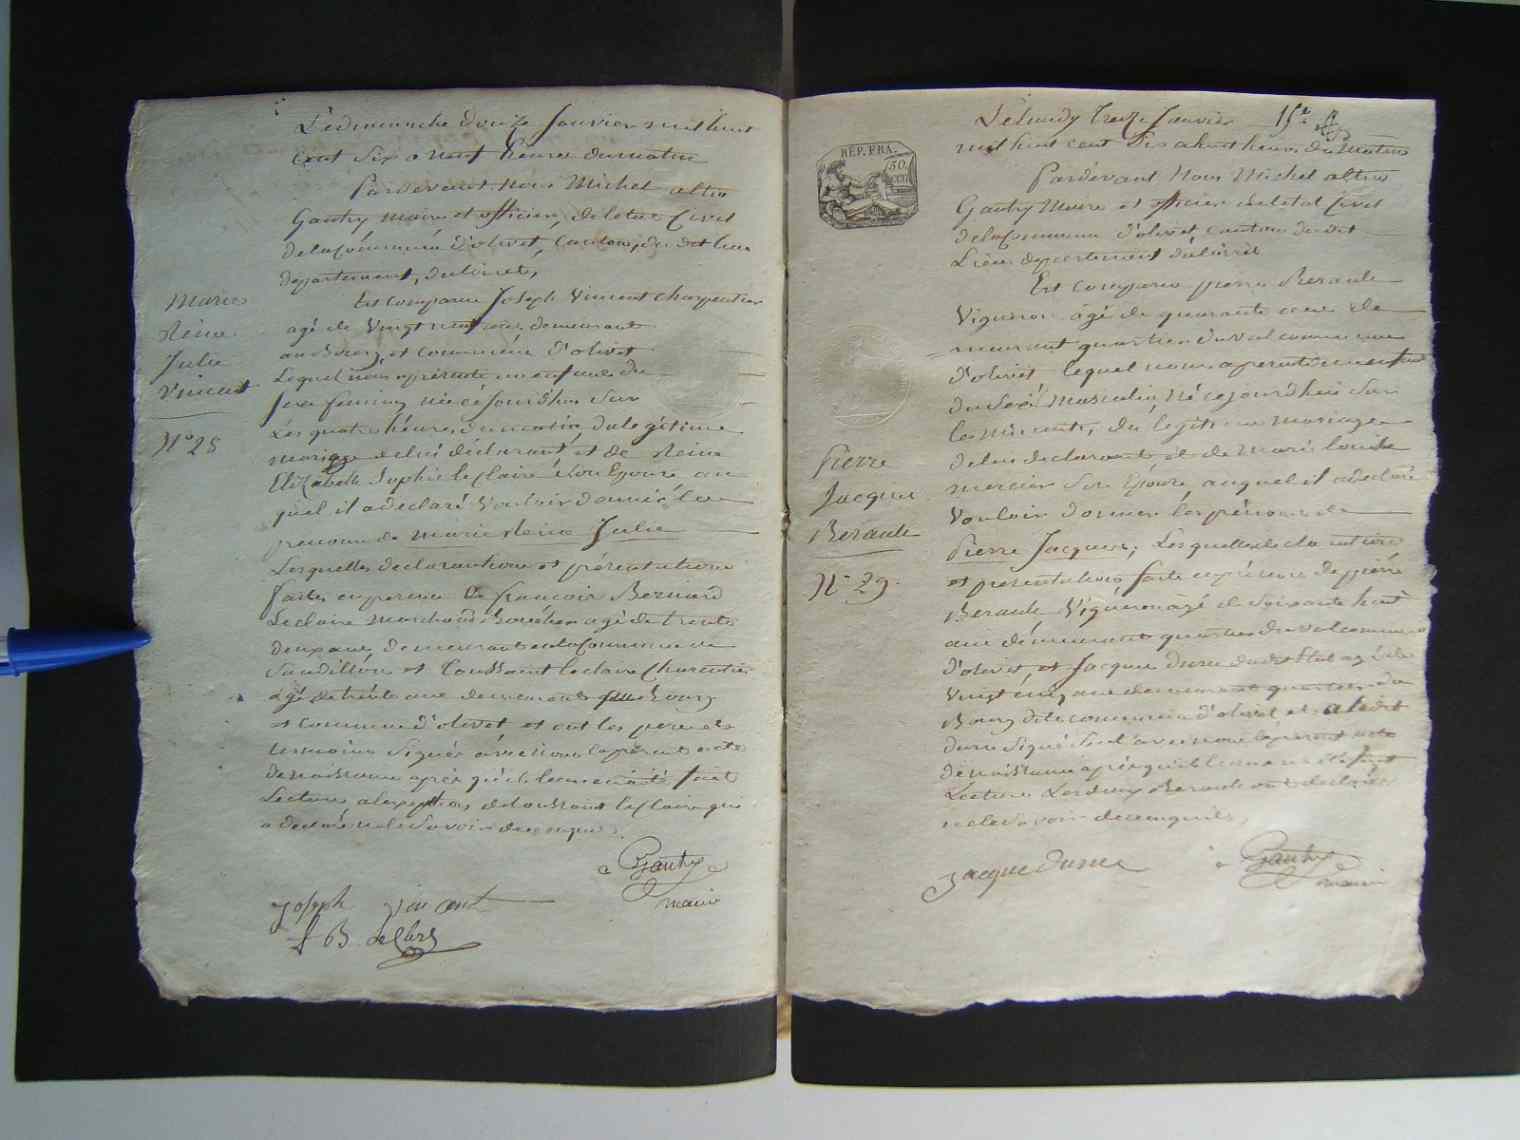 Le dimanche douze Janvier mil huit
cent six a neuf heures du matin
Pardevant Nous Michel altin
Gautry Maire et officier de letat Civil
dela Commune d'olivet, Canton du dit lieu
departement, du loiret,
Est comparu Joseph Vincent charpentier
agé de Vingt neuf ans demeurant
au Bourg et commune d'olivet
Lequel nous a présenté un enfant du
sexe feminin née cejourd'hui sur
Les quatre heures du matin, du légitime
mariage de lui déclarant et de Reine
Elizabelle Sophie leclaire son Epouse au
quel il a declaré Vouloir donner les
prenoms de Marie Reine Julie
Lesquelles declarations et présentations
faites en presence de francois Bernard
Leclaire Marchand Boucher agé de trente
deux ans, demeurant en la Commune de
Sandillon et Toussaint leclaire Charentier
agé de trente ans demeurant Bourg
et commune d'olivet et ont les pere et
temoins signés avec nous le présent acte
de naissance après qu'il leur en a été fait
Lecture a l'exception de toussaint leclaire qui
a declaré ne le savoir de ce enquis
Marie
Reine
Julie
Vincent
N° 28
Gautry
maire
Joseph Vincent
f B leclere
15e
REP. FRA.
50.
Le lundy treize Janvier
mil huit cent six a huit heures du Matin
Pardevant Nous Michel altin
Gautry Maire et officier de letat Civil
dela Commune d'olivet canton du dit
Lieu departement du loiret
Est comparu pierre Beraule
Vigneron agé de quarante ans de
meurant quartier du val commune
d'olivet lequel nous a presenté un enfant
du sexe Masculin, Né cejourd'hui sur
les Minuit, du légitime mariage
de lui declarant et de Marie louise
mercier son Epouse, auquel il a declaré
Vouloir donner les prénoms de
Pierre Jacques, Les quelles declarations
et presentations faite en présence de pierre
Beraule Vigneron agé de soixante huit
ans demeurant quartier du val commune
d'olivet et Jacque Dunu
Vingt cinq ans demeurant quartier du
Bourg dite commune d'olivet et a ledit
signé seul avec nous le present acte
de naissance après qu'il leur en a été fait
Lecture Les deux Beraule ont declaré
ne le savoir de ce enquis,
Pierre
Jacques
Beraule
N° 29.
Jacque
Gautry
maire